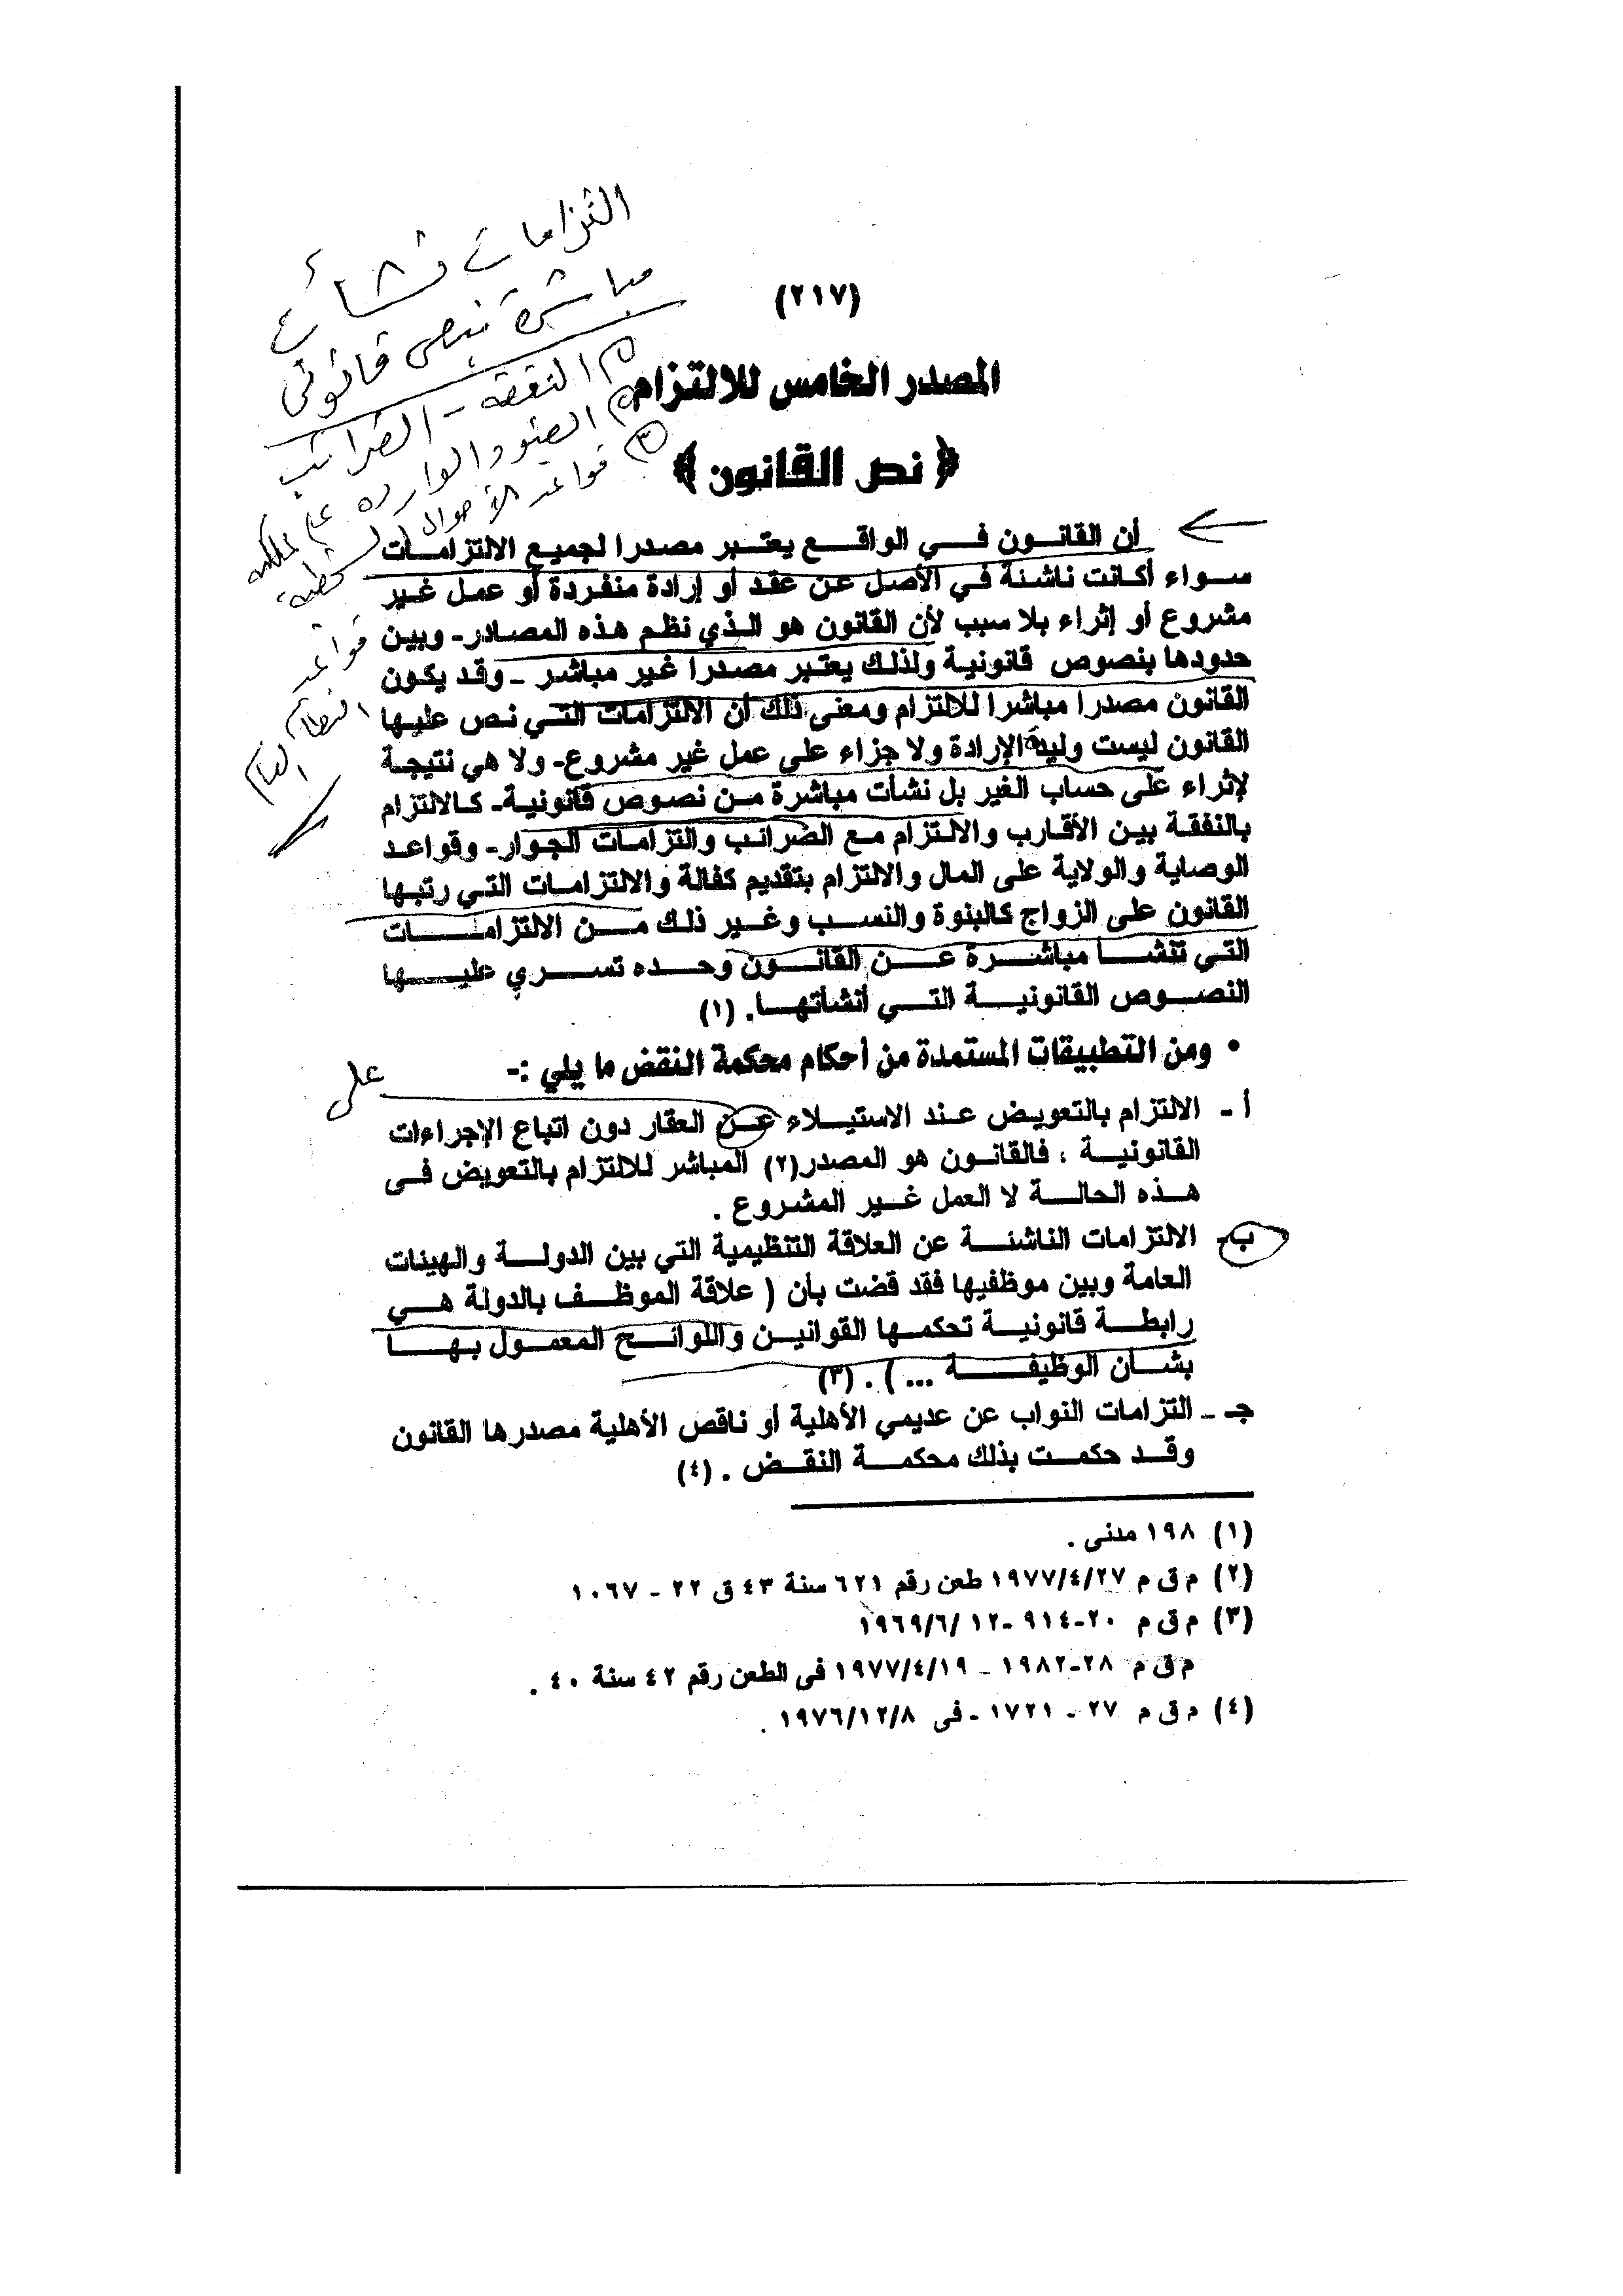 التزامات تنشأ
مباشرة بنص قانوني
النفقة - الضرائب
القيود الواردة على الملكية
(٣) قواعد الأحوال الشخصية
قواعد
النظام العام
(٢١٧)
المصدر الخامس للالتزام
﴿ نص القانون ﴾
أن القانون في الواقع يعتبر مصدرا لجميع الالتزامات
سواء أكانت ناشئة في الأصل عن عقد أو إرادة منفردة أو عمل غير
مشروع أو إثراء بلا سبب لأن القانون هو الذي نظم هذه المصادر- وبين
حدودها بنصوص قانونية ولذلك يعتبر مصدرا غير مباشر - وقد يكون
القانون مصدرا مباشرا للالتزام ومعنى ذلك أن الالتزامات التي نص عليها
القانون ليست وليدة الإرادة ولا جزاء على عمل غير مشروع- ولا هي نتيجة
لإثراء على حساب الغير بل نشأت مباشرة من نصوص قانونية- كالالتزام
بالنفقة بين الأقارب والالتزام مع الضرائب والتزامات الجوار- وقواعد
الوصاية والولاية على المال والالتزام بتقديم كفالة والالتزامات التي رتبها
القانون على الزواج كالبنوة والنسب وغير ذلك من الالتزامات
التي تنشأ مباشرة عن القانون وحده تسري عليها
النصوص القانونية التي أنشأتها. (١)
• ومن التطبيقات المستمدة من أحكام محكمة النقض ما يلي :-
على
أ - الالتزام بالتعويض عند الاستيلاء عن العقار دون اتباع الإجراءات
القانونية ، فالقانون هو المصدر(٢) المباشر للالتزام بالتعويض فى
هذه الحالة لا العمل غير المشروع .
ب- الالتزامات الناشئة عن العلاقة التنظيمية التي بين الدولة والهيئات
العامة وبين موظفيها فقد قضت بأن ( علاقة الموظف بالدولة هي
رابطة قانونية تحكمها القوانين واللوائح المعمول بها
بشأن الوظيفة ... ) . (٣)
جـ - التزامات النواب عن عديمي الأهلية أو ناقص الأهلية مصدرها القانون
وقد حكمت بذلك محكمة النقض . (٤)
(١) ١٩٨ مدنى .
(٢) م ق م ١٩٧٧/٤/٢٧ طعن رقم ٦٢١ سنة ٤٣ ق ٢٢ - ١٠٦٧
(٣) م ق م ٢٠-٩١٤ -١٩٦٩/٦/١٢
م ق م ٢٨-١٩٨٢ - ١٩٧٧/٤/١٩ فى الطعن رقم ٤٢ سنة ٤٠ .
(٤) م ق م ٢٧ - ١٧٢١ - فى ١٩٧٦/١٢/٨ .